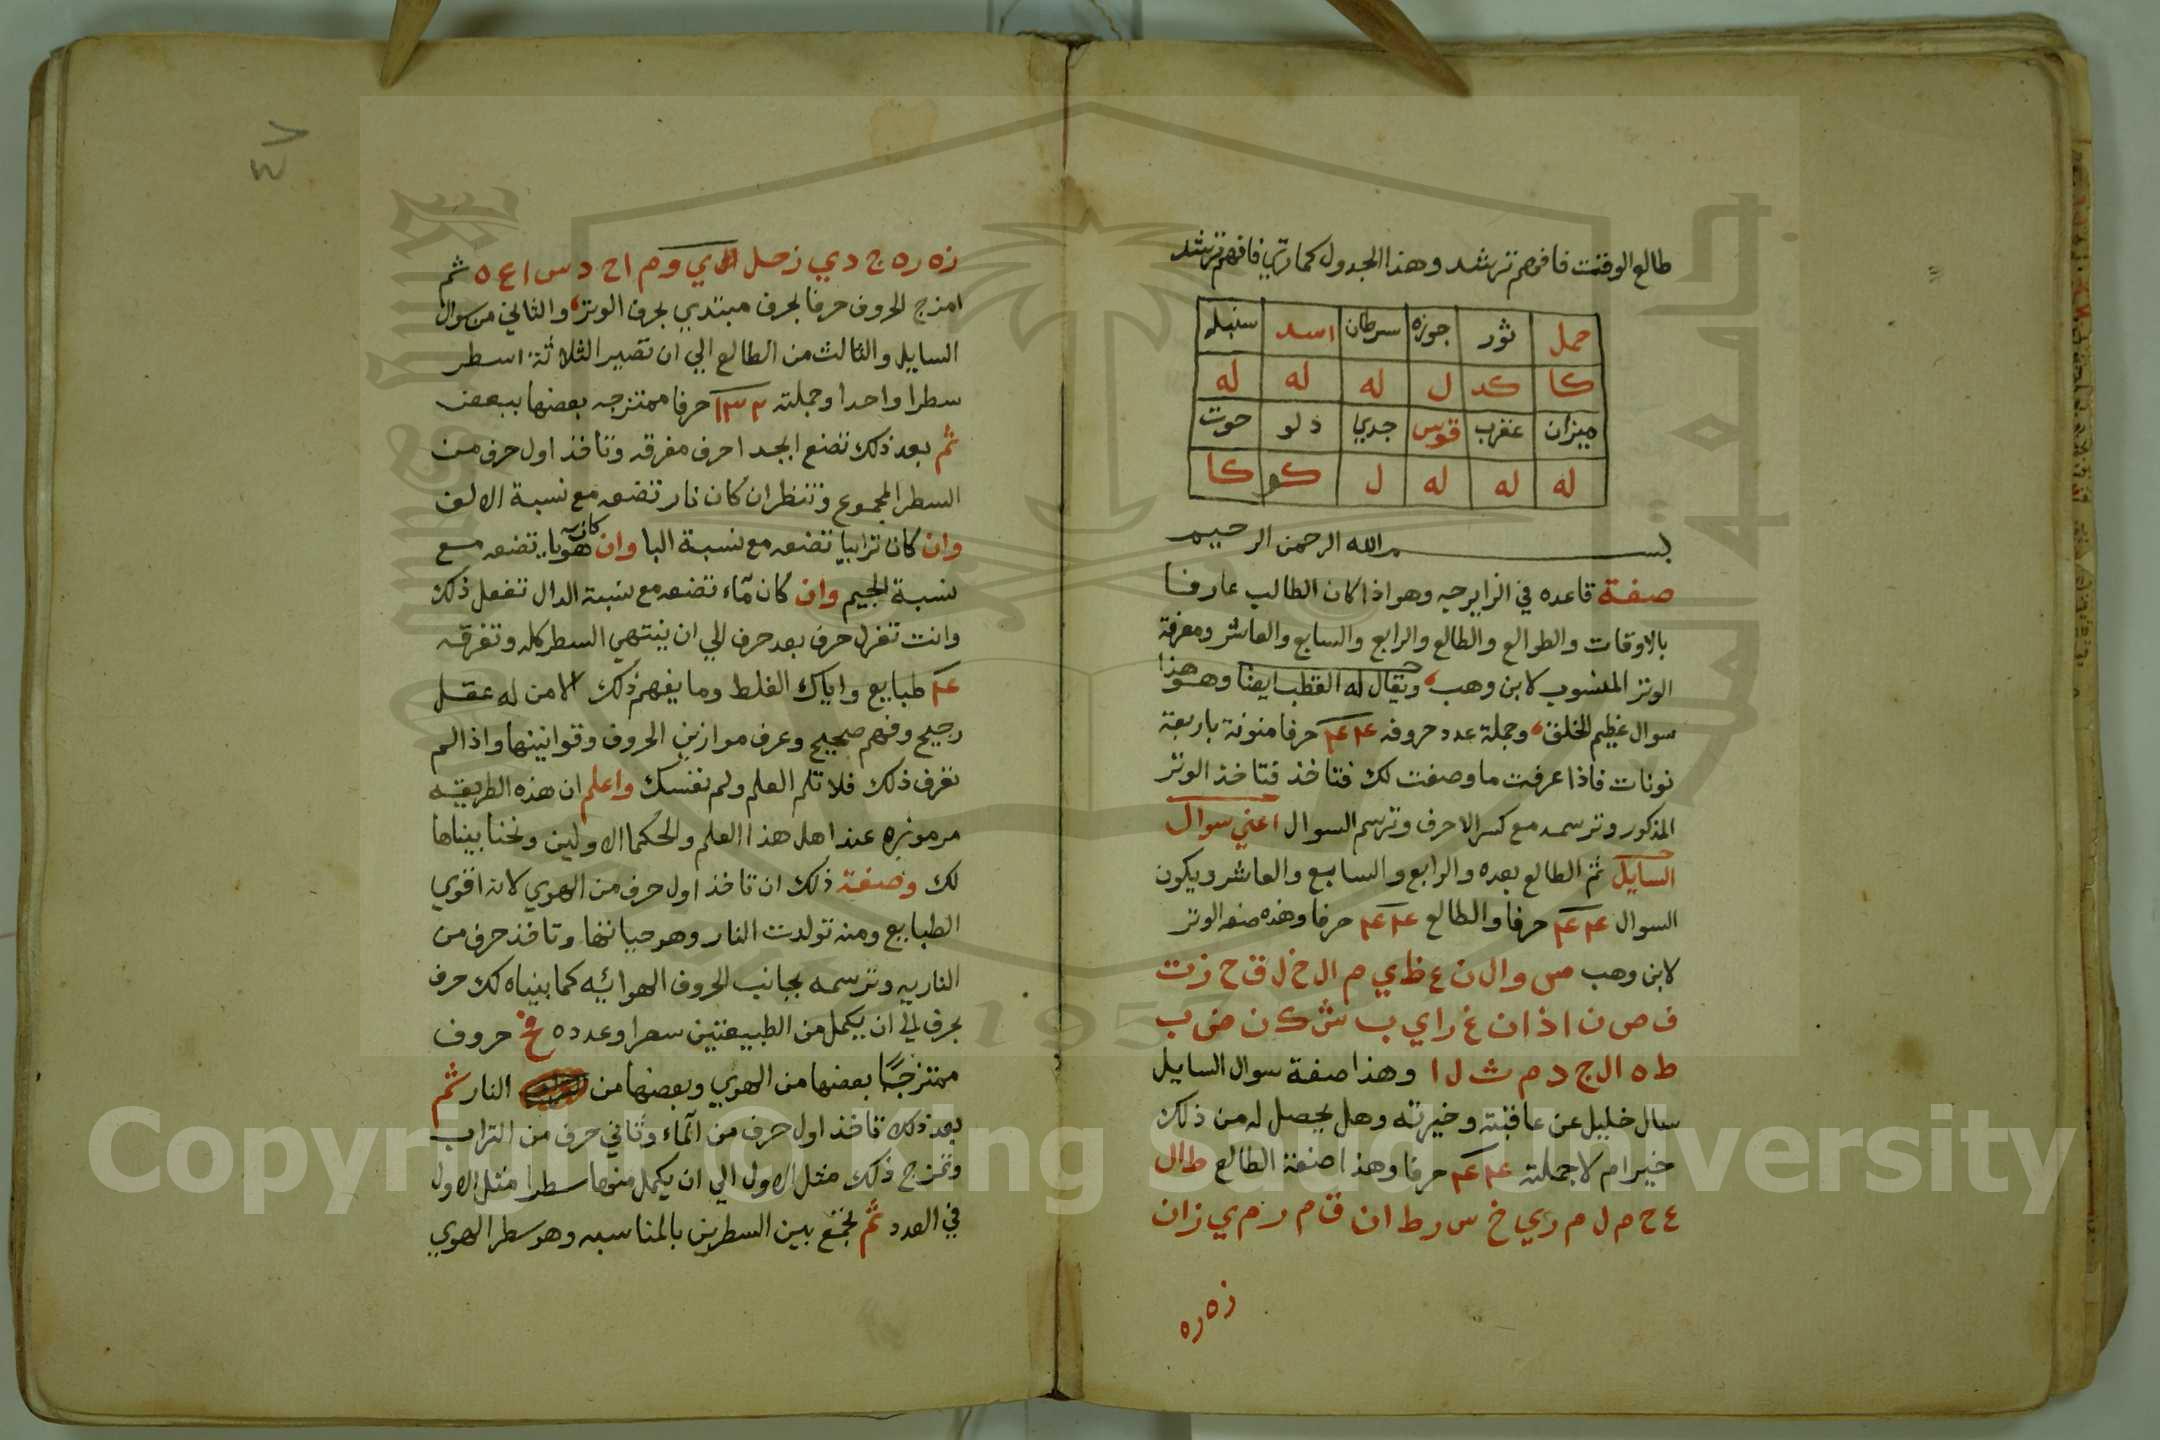 طالع الوقت فافهم ترشد وهذا الجدول كما تري فافهم ترشد
حمل ثور جوزه سرطان اسد سنبله
كا كد ل له له له
ميزان عقرب قوس جدي دلو حوت
له له له ل كو كا
بسم الله الرحمن الرحيم
صفة قاعده في الزايرجه وهو اذا كان الطالب عارفا
بالاوقات والطوالع والطالع والرابع والسابع والعاشر ومعرفة
الوتر المنسوب لابن وهب ويقال له القطب ايضا وهو هذا
سوال عظيم الخلق وجملة عدد حروفه ٤٤ حرفا منونة باربعة
نونات فاذا عرفت ما وصفت لك فتاخذ فتاخذ الوتر
المذكور وترسمه مع كسر الاحرف وترسم السوال اعني سوال
السايل ثم الطالع بعده والرابع والسابع والعاشر ويكون
السوال ٤٤ حرفا والطالع ٤٤ حرفا وهذه صفة الوتر
لابن وهب س و ا ل ن ع ظ ي م ا ل خ ل ق ح ز ت
ف ص ن ا ذ ا ن غ ر ا ي ب ش ك ن ض ب
ط ه ا ل ج د م ث ل ا وهذا صفة سوال السايل
سال خليل عن عاقبته وخيرته وهل يحصل له من ذلك
خير ام لا جملته ٤٤ حرفا وهذا صفة الطالع ط ا ل
ع ح م ل م ر ي خ س ر ط ا ن ق م ر م ي ز ا ن
ز ه ر ه
٤٧
ز ه ر ه ج د ي ز ح ل ا ل ي و م ا ح د س ا ع ه ثم
امزج الحروف حرفا بحرف مبتدي بحرف الوتر والثاني من سوال
السايل والثالث من الطالع الي ان تصير الثلاثة اسطر
سطرا واحدا وجملته ١٣٢ حرفا ممتزجه بعضها ببعض
ثم بعد ذلك تضع ابجد احرف مفرقه وتاخذ اول حرف من
السطر المجموع وتنظر ان كان نار تضعه مع نسبة الالف
وان كان ترابيا تضعه مع نسبة البا وان كان هويا تضعه مع
نسبة الجيم وان كان ماء تضعه مع نسبة الدال تفعل ذلك
وانت تعزل حرف بعد حرف الي ان ينتهي السطر كله وتفرقه
٤ طبايع واياك الغلط وما يفهم ذلك الا من له عقل
رجيح وفهم صحيح وعرف موازين الحروف وقوانينها واذا لم
تعرف ذلك فلا تلم العلم ولم نفسك واعلم ان هذه الطريقه
مرموزه عند اهل هذا العلم والحكما الاولين ونحنا بيناها
لك وصفة ذلك ان تاخذ اول حرف من الهوي لانه اقوي
الطبايع ومنه تولدت النار وهو حياتها وتاخذ حرف من
الناريه وترسمه بجانب الحروف الهوائيه كما بيناه لك حرف
بحرف الي ان يكمل من الطبيعتين سطرا وعدده حروف
ممتزجًا بعضها من الهوي وبعضها من النار ثم
بعد ذلك تاخذ اول حرف من الماء وثاني حرف من التراب
وتمزج ذلك مثل الاول الي ان يكمل منها سطرا مثل الاول
في العدد ثم تجمع بين السطرين بالمناسبه وهو سطر الهوي
جامعة الملك سعود
King Saud University
1957
Copyright © King Saud University